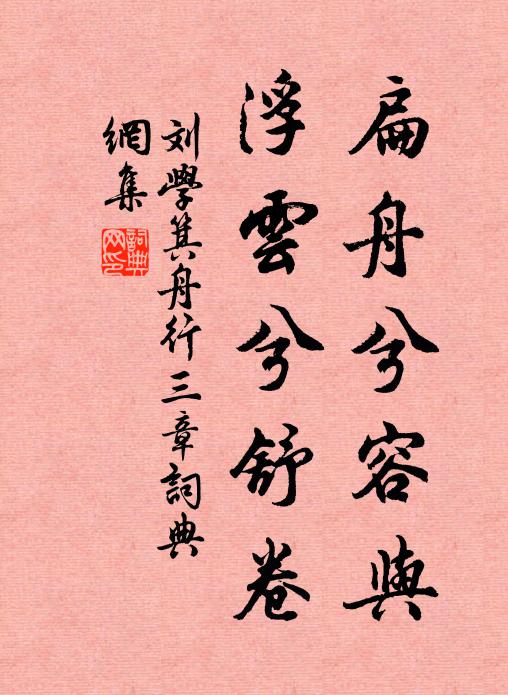 扁舟兮容與
浮雲兮舒卷
刘學箕舟行三章詞典
網集
詞典網印